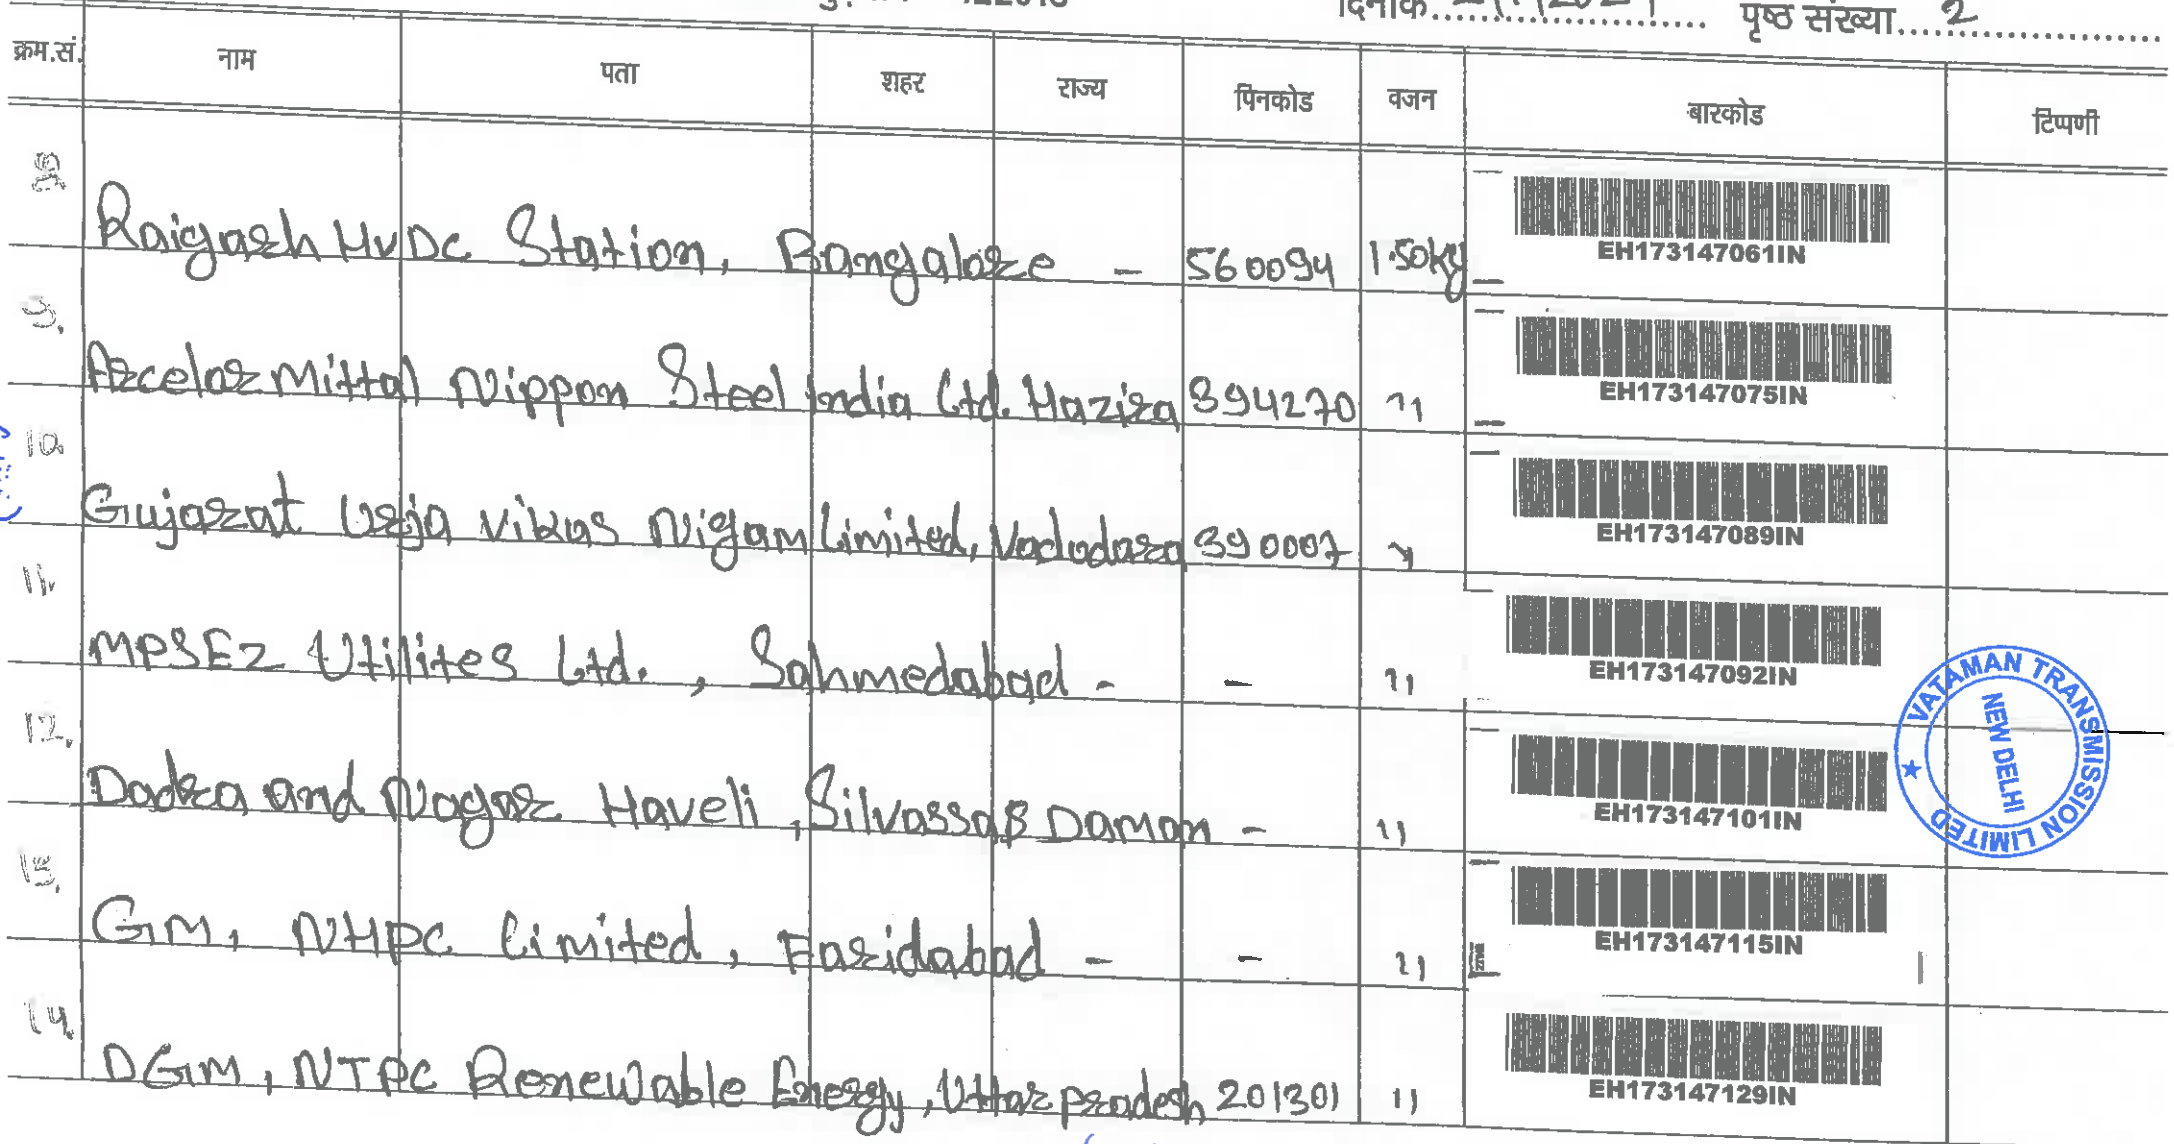 दिनांक........ पृष्ठ संख्या....2....
क्रम.सं. नाम पता शहर राज्य पिनकोड वजन बारकोड टिप्पणी
8. Raigarh HVDC Station, Bangalore - 560094 1.50kg EH173147061IN
9. Arcelor Mittal Nippon Steel India Ltd. Hazira 394270 11 EH173147075IN
10. Gujarat Urja Vikas Nigam Limited, Vadodara 390007 11 EH173147089IN
11. MPSEZ Utilites Ltd., Sahmedabad - - 11 EH173147092IN
12. Dadra and Nagar Haveli, Silvassa & Daman - 11 EH173147101IN
13. GM, NHPC Limited, Faridabad - - 11 EH173147115IN
14. DGM, NTPC Renewable Energy, Uttar pradesh 201301 11 EH173147129IN
VATAMAN TRANSMISSION LIMITED ★
NEW DELHI